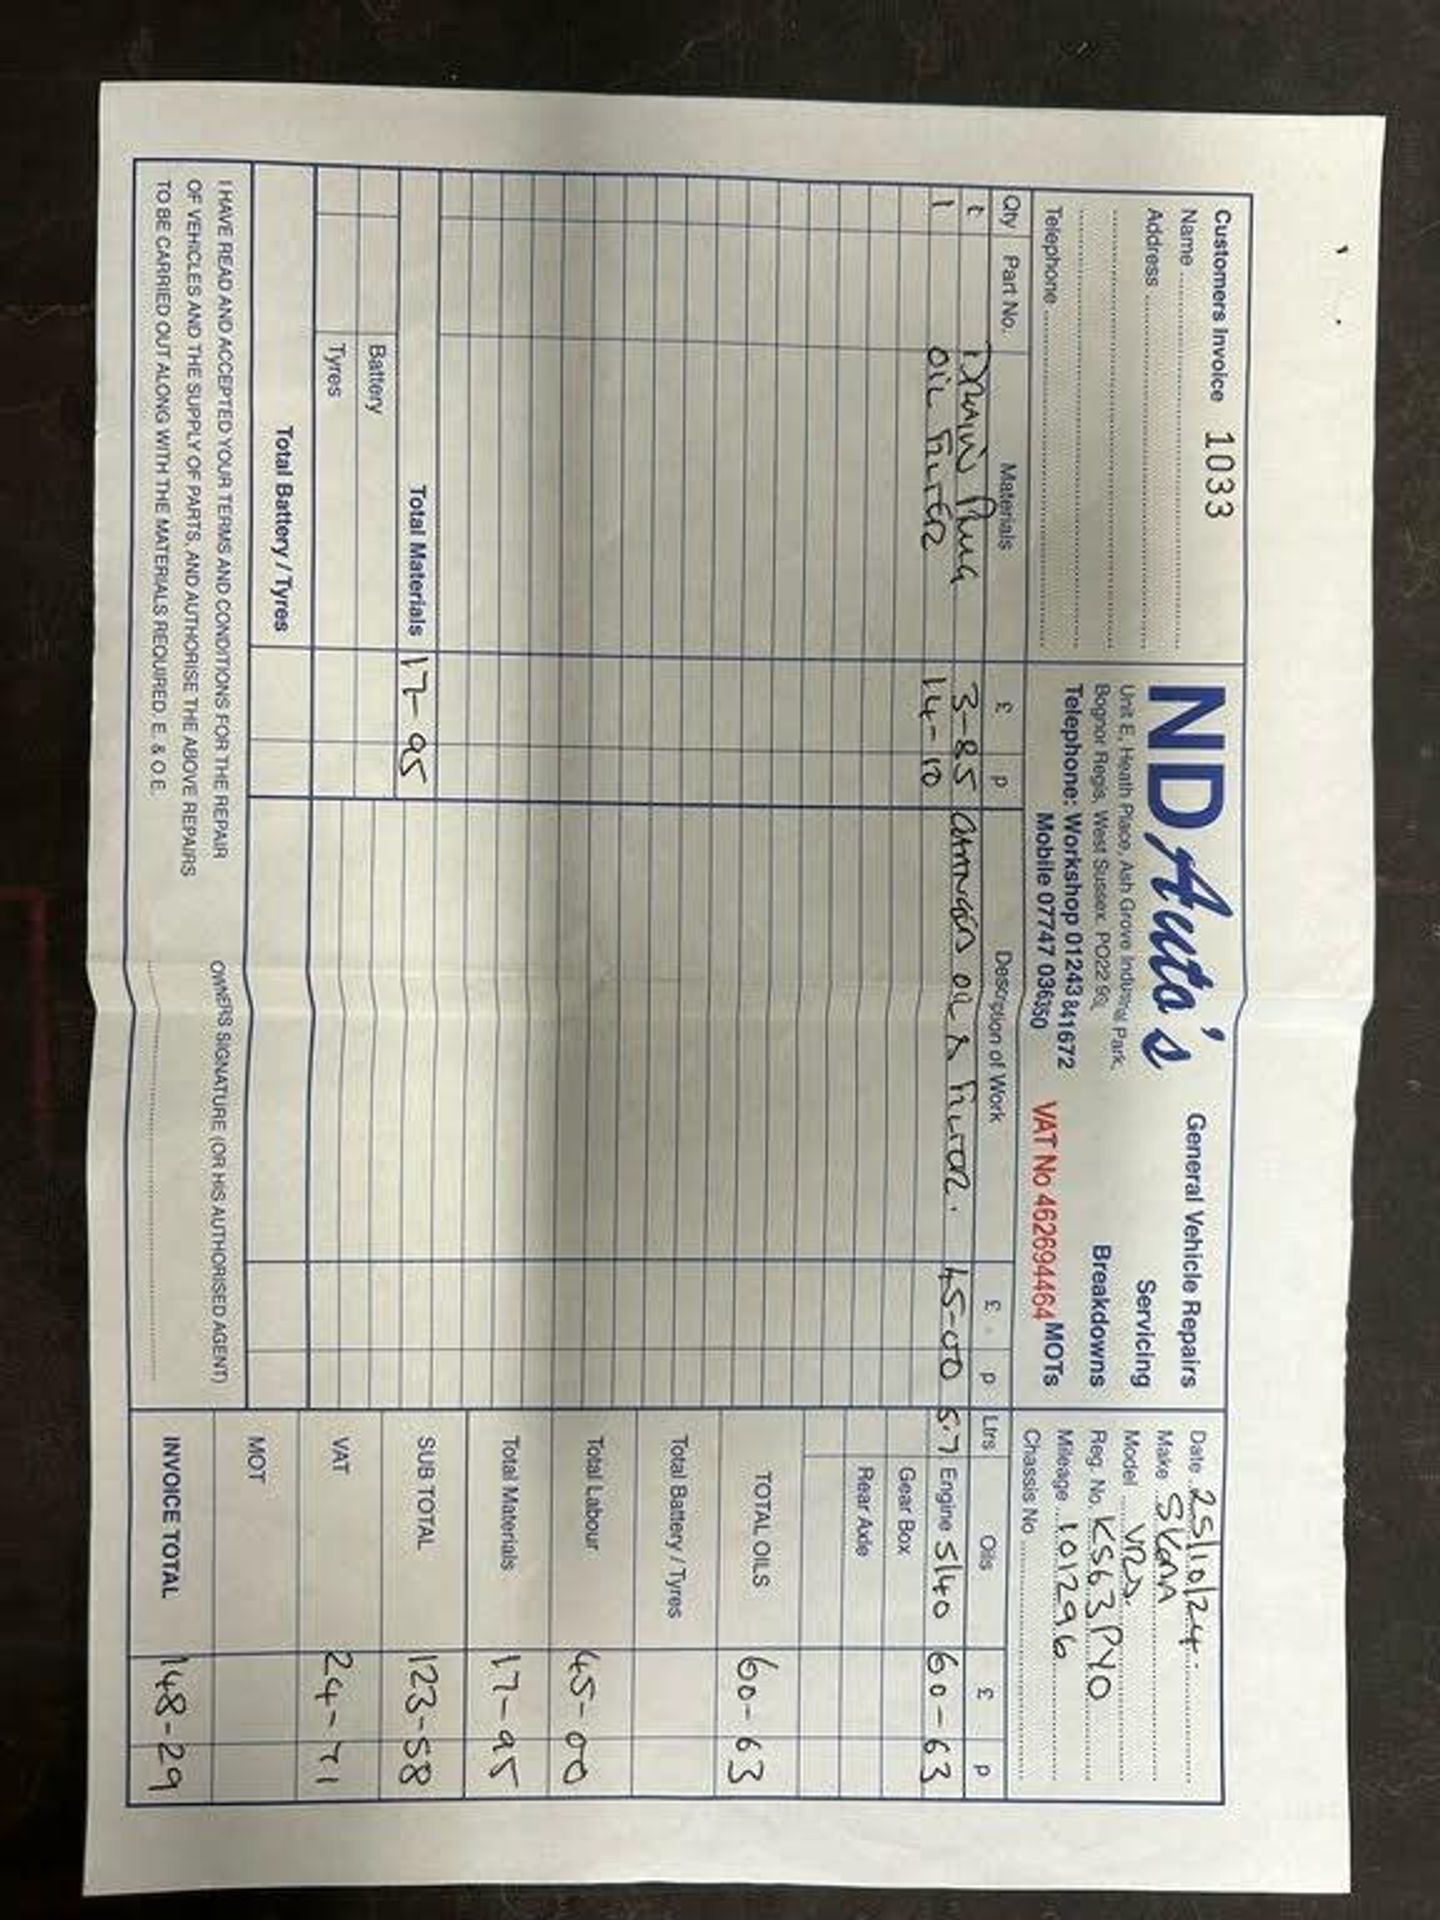 Customers Invoice 1033
Name
Address
Telephone
ND Auto's
Unit E, Heath Place, Ash Grove Industrial Park,
Bognor Regis, West Sussex. PO22 9SL
Telephone: Workshop 01243 841672
Mobile 07747 036350
General Vehicle Repairs
Servicing
Breakdowns
MOTs
VAT No 462694464
Date 25/10/24
Make SKODA
Model VRS.
Reg. No. KS63PYO
Mileage 101296
Chassis No
Qty Part No. Materials £ p Description of Work £ p Ltrs Oils £ p
1 DRAIN PLUG 3-85 CHANGED OIL & FILTER. 45-00 5.7 Engine 5/40 60-63
1 OIL FILTER 14-10 Gear Box
Rear Axle
TOTAL OILS 60-63
Total Battery / Tyres
Total Labour 45-00
Total Materials 17-95
Total Materials 17-95 SUB TOTAL 123-58
Battery
Tyres VAT 24-71
Total Battery / Tyres MOT
INVOICE TOTAL 148-29
I HAVE READ AND ACCEPTED YOUR TERMS AND CONDITIONS FOR THE REPAIR
OF VEHICLES AND THE SUPPLY OF PARTS, AND AUTHORISE THE ABOVE REPAIRS
TO BE CARRIED OUT ALONG WITH THE MATERIALS REQUIRED. E. & O.E.
OWNERS SIGNATURE (OR HIS AUTHORISED AGENT)